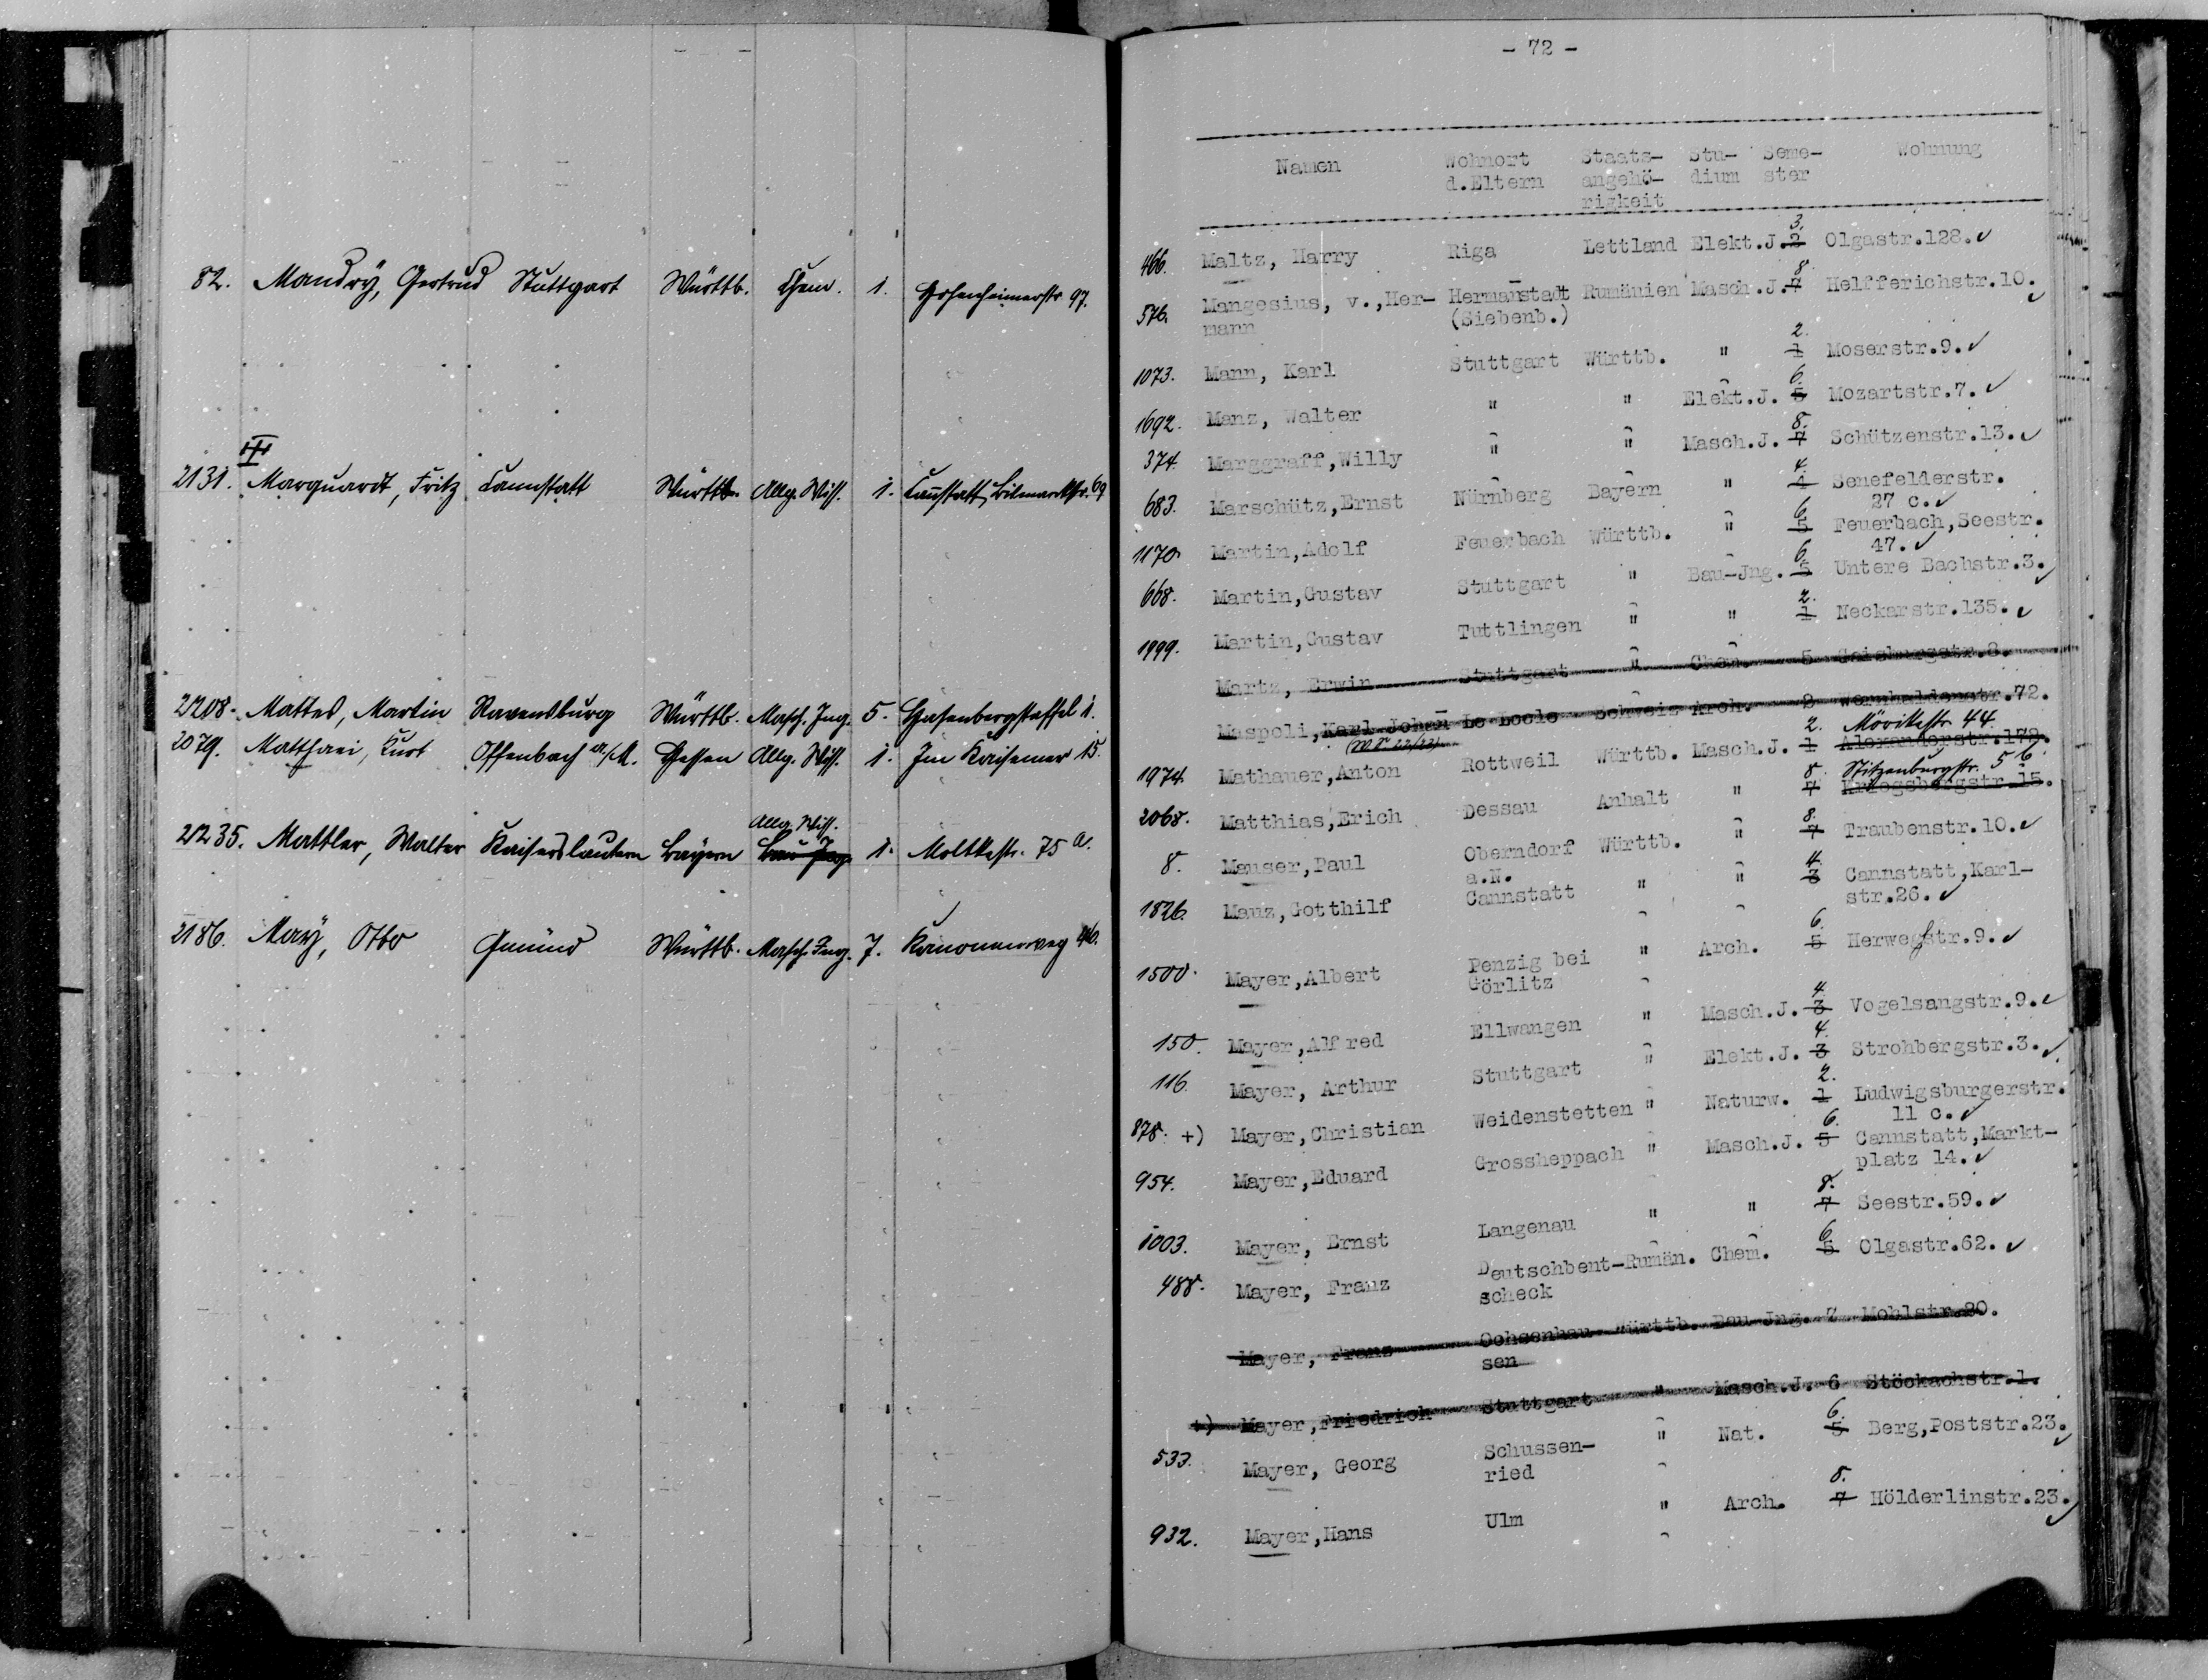 82. Mandrÿ, Gertrud Stuttgart Württb. Chem. 1. Hohenheimerstr. 97.
2131. Marquardt, Fritz Cannstatt Württb. Allg. Wiss. 1. Cannstatt, Bismarckstr. 69
2208. Mattes, Martin Ravensburg Württb. Masch. Ing. 5. Hasenbergsteffel 1.
2079. Matthaei, Kurt Offenbach a/M. Hessen Allg. Wiss. 1. Im Kaisemer 15.
Allg. Wiss.
2235. Mattler, Walter Kaiserslautern Bayern Bau Ing. 1. Moltkestr. 75 a.
2186. Maÿ, Otto Gmünd Württb. Masch. Ing. 7. Kanonenweg 46.
- 72 -
Namen Wohnort Staats- Stu- Seme- Wohnung
d.Eltern angehö- dium ster
rigkeit
3.
466. Maltz, Harry Riga Lettland Elekt.J. 2 Olgastr.128.
8.
576. Mangesius, v.,Her- Hermanstadt Rumänien Masch.J. 7 Helfferichstr.10.
mann (Siebenb.)
2.
1073. Mann, Karl Stuttgart Württb. " 1 Moserstr.9.
6.
1692. Manz, Walter " " Elekt.J. 5 Mozartstr.7.
8.
374. Marggraff,Willy " " Masch.J. 7 Schützenstr.13.
4.
683. Marschütz,Ernst Nürnberg Bayern " Senefelderstr.
27 c.
6.
1170. Martin,Adolf Feuerbach Württb. " 5 Feuerbach,Seestr.
47.
6.
668. Martin,Gustav Stuttgart " Bau-Jng. 5 Untere Bachstr.3.
2.
1999. Martin,Gustav Tuttlingen " " 1 Neckarstr.135.
Martz, Erwin Stuttgart " Chem. 5 Gaisburgstr.8.
Maspoli,Karl Johan Le Locle Schweiz Arch. 2 Wannhaldenstr.72.
2. Mörikestr. 44
1974. Mathauer,Anton Rottweil Württb. Masch.J. 1 Alexanderstr.179.
8. Stitzenburgstr. 5
2068. Matthias,Erich Dessau Anhalt " 7 Kriegsbergstr.15.
8.
8. Mauser,Paul Oberndorf Württb. " 7 Traubenstr.10.
a.N.
4.
1826. Mauz,Gotthilf Cannstatt " " 3 Cannstatt,Karl-
str.26.
6.
1500. Mayer,Albert Penzig bei " Arch. 5 Herwegstr.9.
Görlitz
4.
150. Mayer,Alfred Ellwangen " Masch.J. 3 Vogelsangstr.9.
4.
116. Mayer, Arthur Stuttgart " Elekt.J. 3 Strohbergstr.3.
2.
878. +) Mayer,Christian Weidenstetten " Naturw. 1 Ludwigsburgerstr.
11 c.
6.
954. Mayer,Eduard Grossheppach " Masch.J. 5 Cannstatt,Markt-
platz 14.
8.
1003. Mayer, Ernst Langenau " " 7 Seestr.59.
6.
488. Mayer, Franz Deutschbent-Rumän. Chem. 5 Olgastr.62.
scheck
Mayer, Franz Ochsenhau- Württb. Bau Jng. 7 Mohlstr.20.
sen
+) Mayer,Friedrich Stuttgart " Masch.J. 6 Stöckachstr.1.
6.
533. Mayer, Georg Schussen- " Nat. 5 Berg,Poststr.23.
ried
8.
932. Mayer,Hans Ulm " Arch. 7 Hölderlinstr.23.